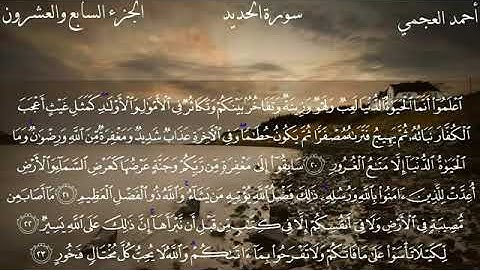 الجزء السابع والعشرون
سورة الحديد
أحمد العجمي
ٱعۡلَمُوٓاْ أَنَّمَا ٱلۡحَيَوٰةُ ٱلدُّنۡيَا لَعِبٞ وَلَهۡوٞ وَزِينَةٞ وَتَفَاخُرُۢ بَيۡنَكُمۡ وَتَكَاثُرٞ فِي ٱلۡأَمۡوَٰلِ وَٱلۡأَوۡلَٰدِۖ كَمَثَلِ غَيۡثٍ أَعۡجَبَ
ٱلۡكُفَّارَ نَبَاتُهُۥ ثُمَّ يَهِيجُ فَتَرَىٰهُ مُصۡفَرّٗا ثُمَّ يَكُونُ حُطَٰمٗاۖ وَفِي ٱلۡأٓخِرَةِ عَذَابٞ شَدِيدٞ وَمَغۡفِرَةٞ مِّنَ ٱللَّهِ وَرِضۡوَٰنٞۚ وَمَا
ٱلۡحَيَوٰةُ ٱلدُّنۡيَآ إِلَّا مَتَٰعُ ٱلۡغُرُورِ ٢٠ سَابِقُوٓاْ إِلَىٰ مَغۡفِرَةٖ مِّن رَّبِّكُمۡ وَجَنَّةٍ عَرۡضُهَا كَعَرۡضِ ٱلسَّمَآءِ وَٱلۡأَرۡضِ
أُعِدَّتۡ لِلَّذِينَ ءَامَنُواْ بِٱللَّهِ وَرُسُلِهِۦۚ ذَٰلِكَ فَضۡلُ ٱللَّهِ يُؤۡتِيهِ مَن يَشَآءُۚ وَٱللَّهُ ذُو ٱلۡفَضۡلِ ٱلۡعَظِيمِ ٢١ مَآ أَصَابَ مِن
مُّصِيبَةٖ فِي ٱلۡأَرۡضِ وَلَا فِيٓ أَنفُسِكُمۡ إِلَّا فِي كِتَٰبٖ مِّن قَبۡلِ أَن نَّبۡرَأَهَآۚ إِنَّ ذَٰلِكَ عَلَى ٱللَّهِ يَسِيرٞ ٢٢
لِّكَيۡلَا تَأۡسَوۡاْ عَلَىٰ مَا فَاتَكُمۡ وَلَا تَفۡرَحُواْ بِمَآ ءَاتَىٰكُمۡۗ وَٱللَّهُ لَا يُحِبُّ كُلَّ مُخۡتَالٖ فَخُورٍ ٢٣